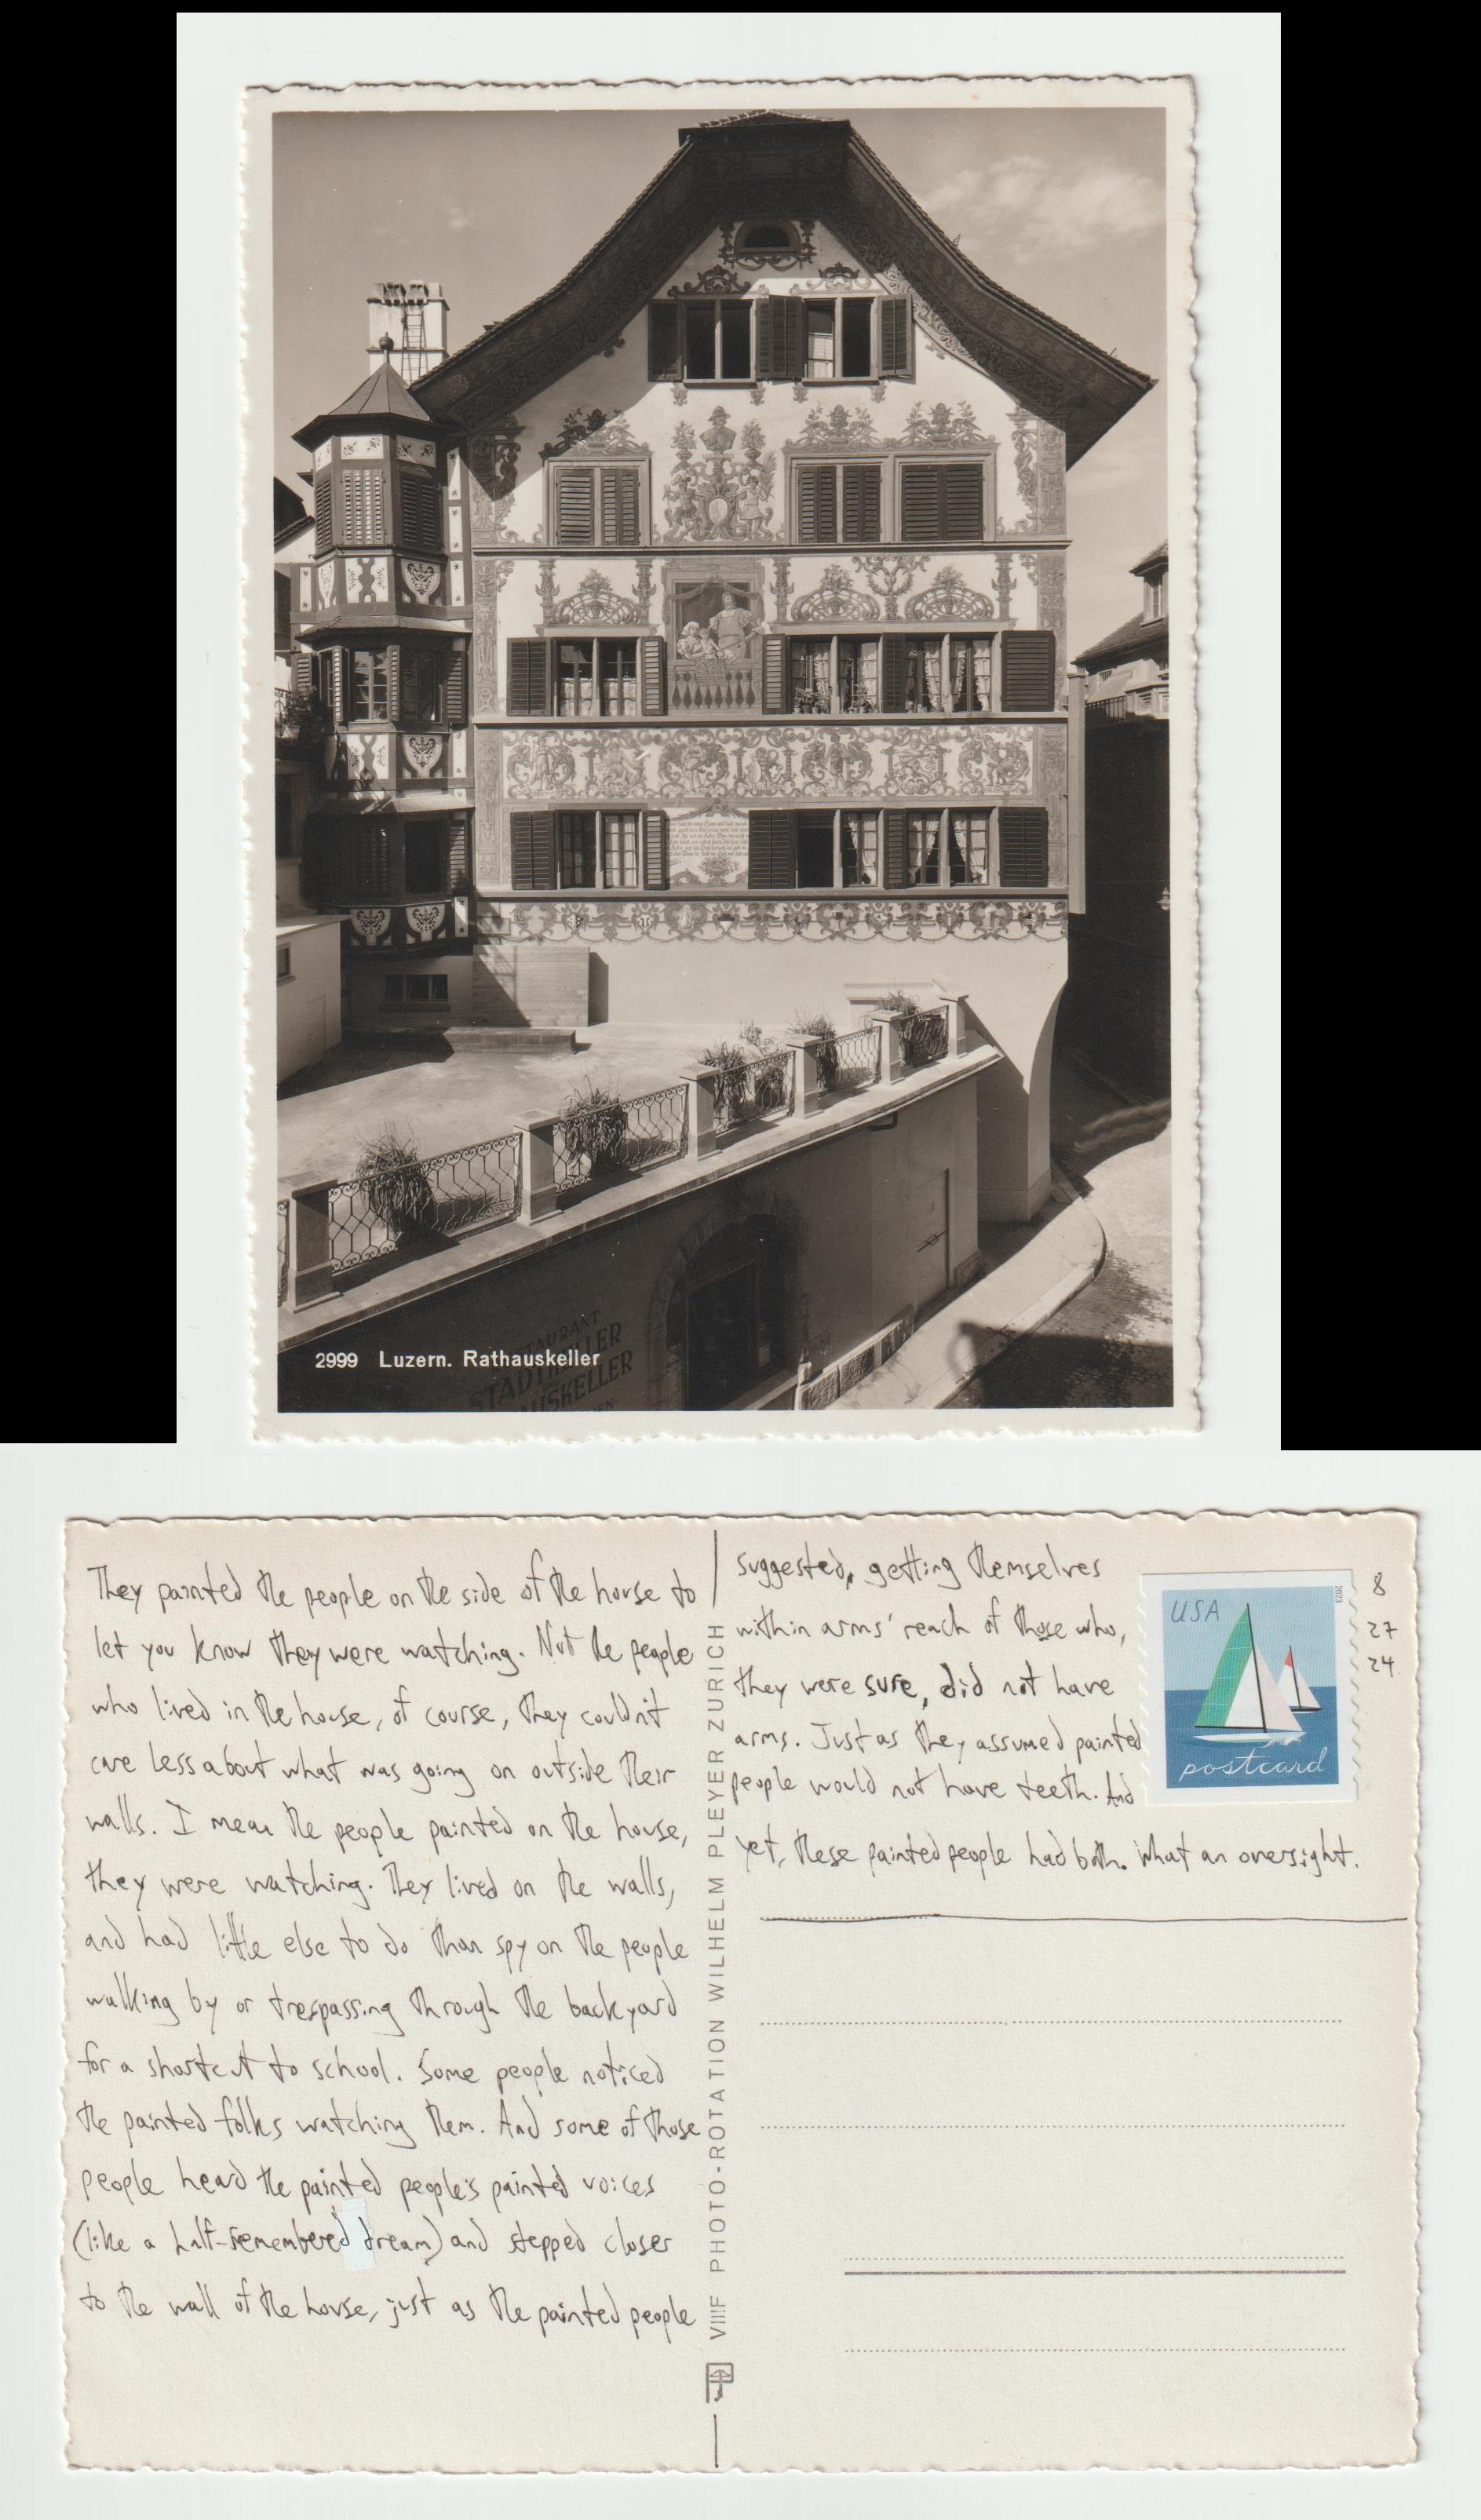 2999 Luzern. Rathauskeller
They painted the people on the side of the house to
let you know they were watching. Not the people
who lived in the house, of course, they couldn't
care less about what was going on outside their
walls. I mean the people painted on the house,
they were watching. They lived on the walls,
and had little else to do than spy on the people
walking by or trespassing through the backyard
for a shortcut to school. Some people noticed
the painted folks watching them. And some of those
people heard the painted people's painted voices
(like a half-remembered dream) and stepped closer
to the wall of the house, just as the painted people
VIIIF PHOTO-ROTATION WILHELM PLEYER ZURICH
suggested, getting themselves
within arms' reach of those who,
they were sure, did not have
arms. Just as they assumed painted
people would not have teeth. And
yet, these painted people had both. What an oversight.
USA
2023
postcard
8
27
24